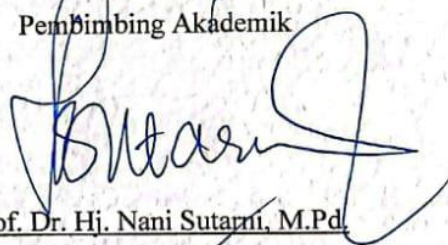 Pembimbing Akademik
of. Dr. Hj. Nani Sutarni, M.Pd.